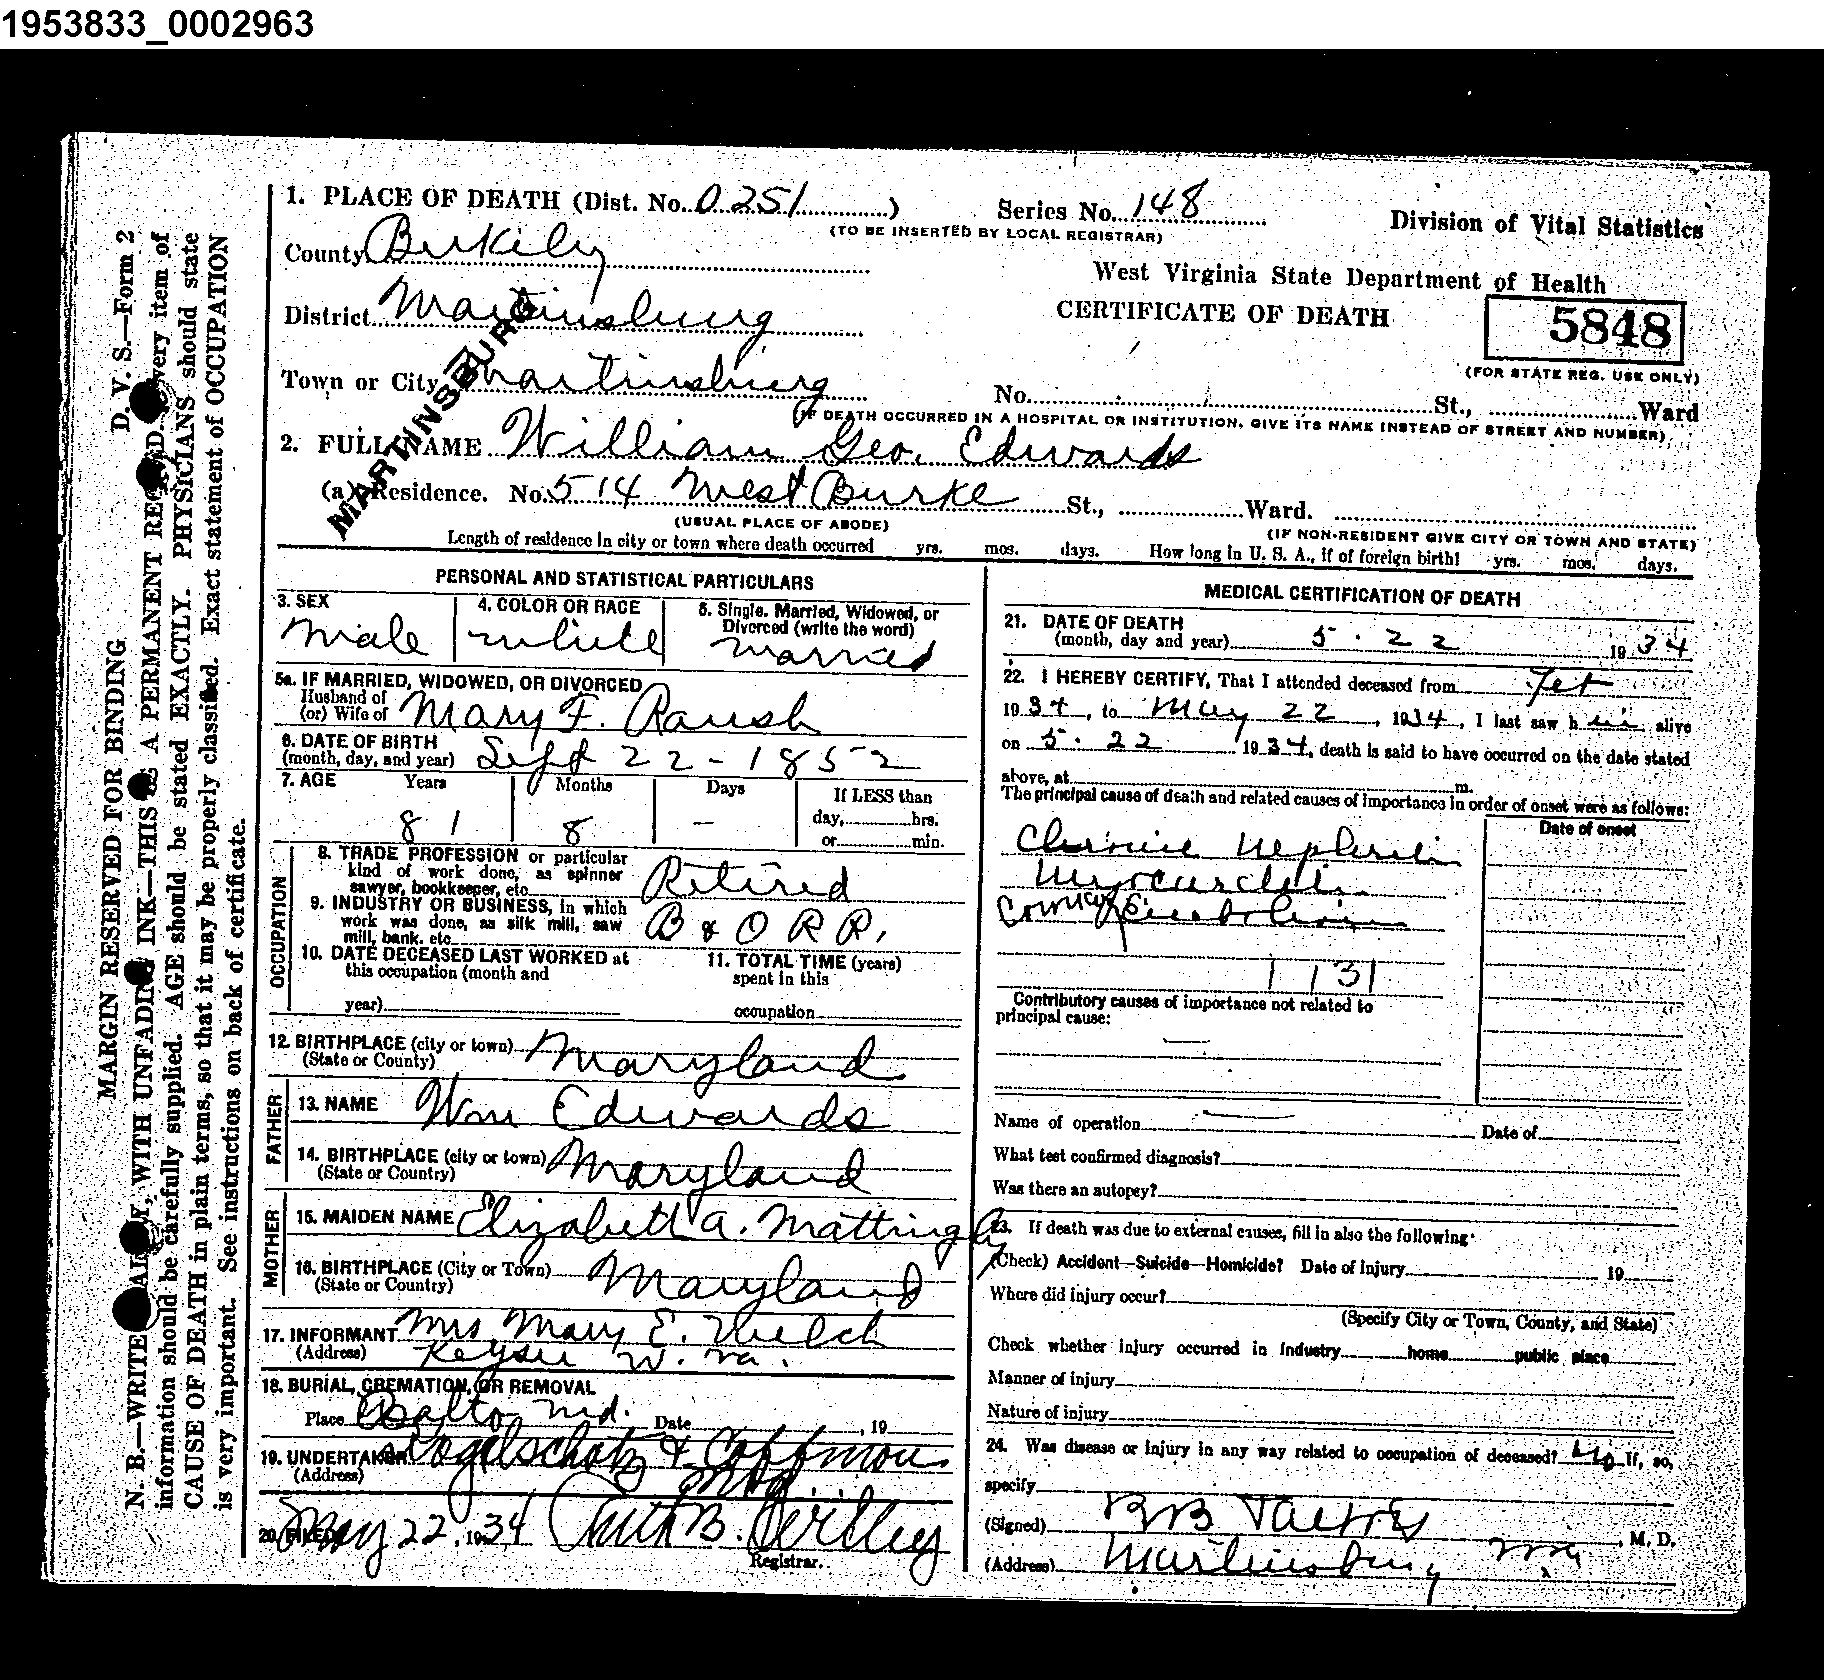 1953833_0002963
1. PLACE OF DEATH (Dist. No. 0251) Series No. 148 Division of Vital Statistics
(TO BE INSERTED BY LOCAL REGISTRAR)
County Berkeley
West Virginia State Department of Health
District Martinsburg CERTIFICATE OF DEATH 5848
(FOR STATE REG. USE ONLY)
Town or City Martinsburg No. St., Ward
MARTINSBURG
(IF DEATH OCCURRED IN A HOSPITAL OR INSTITUTION, GIVE ITS NAME INSTEAD OF STREET AND NUMBER)
2. FULL NAME William Geo. Edwards
(a) Residence. No. 514 West Burke St., Ward.
(USUAL PLACE OF ABODE) (IF NON-RESIDENT GIVE CITY OR TOWN AND STATE)
Length of residence in city or town where death occurred yrs. mos. days. How long in U. S. A., if of foreign birth? yrs. mos. days.
PERSONAL AND STATISTICAL PARTICULARS
3. SEX 4. COLOR OR RACE 5. Single. Married, Widowed, or
Divorced (write the word)
Male white married
5a. IF MARRIED, WIDOWED, OR DIVORCED
Husband of
(or) Wife of Mary F. Raush
6. DATE OF BIRTH
(month, day, and year) Sept 22 - 1852
7. AGE Years Months Days If LESS than
day, hrs.
or min.
81 8 —
OCCUPATION
8. TRADE PROFESSION or particular
kind of work done, as spinner
sawyer, bookkeeper, etc. Retired
9. INDUSTRY OR BUSINESS, in which
work was done, as silk mill, saw
mill, bank, etc. B & O R R.
10. DATE DECEASED LAST WORKED at 11. TOTAL TIME (years)
this occupation (month and spent in this
year) occupation
12. BIRTHPLACE (city or town) Maryland
(State or County)
FATHER
13. NAME Wm Edwards
14. BIRTHPLACE (city or town) Maryland
(State or Country)
MOTHER
15. MAIDEN NAME Elizabeth A. Mattingly
16. BIRTHPLACE (City or Town) Maryland
(State or Country)
17. INFORMANT Mrs. Mary E. Welch
(Address) Keyser W. Va.
18. BURIAL, CREMATION, OR REMOVAL
Place Balto Md. Date , 19
19. UNDERTAKER & Coffman
(Address)
20. FILED May 22, 1934
Registrar.
MEDICAL CERTIFICATION OF DEATH
21. DATE OF DEATH
(month, day and year) 5 . 22 1934
22. I HEREBY CERTIFY, That I attended deceased from
1934, to May 22, 1934, I last saw him alive
on 5. 22 1934, death is said to have occurred on the date stated
above, at m.
The principal cause of death and related causes of importance in order of onset were as follows:
Date of onset
Chronic Nephritis
Myocarditis
Coronary Embolism
131
Contributory causes of importance not related to
principal cause:
—
Name of operation — Date of
What test confirmed diagnosis?
Was there an autopsy?
23. If death was due to external causes, fill in also the following:
(Check) Accident—Suicide—Homicide? Date of injury 19
Where did injury occur?
(Specify City or Town, County, and State)
Check whether injury occurred in industry home public place
Manner of injury
Nature of injury
24. Was disease or injury in any way related to occupation of deceased? No If, so,
specify
(Signed) M. D.
(Address) Martinsburg
D. V. S.—Form 2
MARGIN RESERVED FOR BINDING
N. B.—WRITE PLAINLY, WITH UNFADING INK—THIS IS A PERMANENT RECORD. Every item of
information should be carefully supplied. AGE should be stated EXACTLY. PHYSICIANS should state
CAUSE OF DEATH in plain terms, so that it may be properly classified. Exact statement of OCCUPATION
is very important. See instructions on back of certificate.